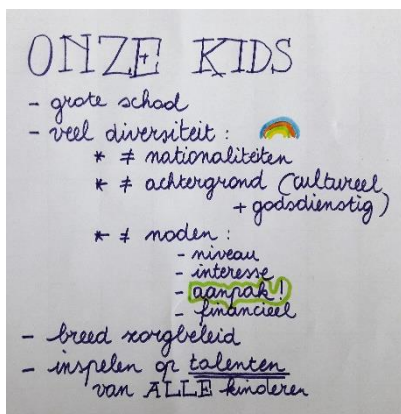 ONZE KIDS
- grote school
- veel diversiteit :
* ≠ nationaliteiten
* ≠ achtergrond (cultureel
+ godsdienstig)
* ≠ noden :
- niveau
- interesse
- aanpak !
- financieel
- breed zorgbeleid
- inspelen op talenten
van ALLE kinderen